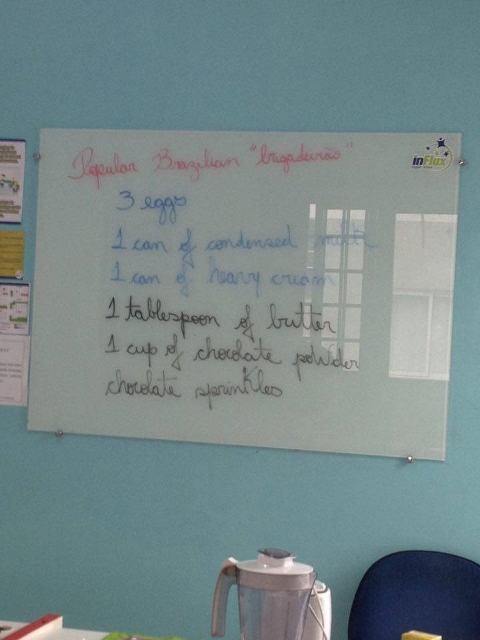 Popular Brazilian "brigadeirão"
inFlux
3 eggs
1 can of condensed milk
1 can of heavy cream
1 tablespoon of butter
1 cup of chocolate powder
chocolate sprinkles